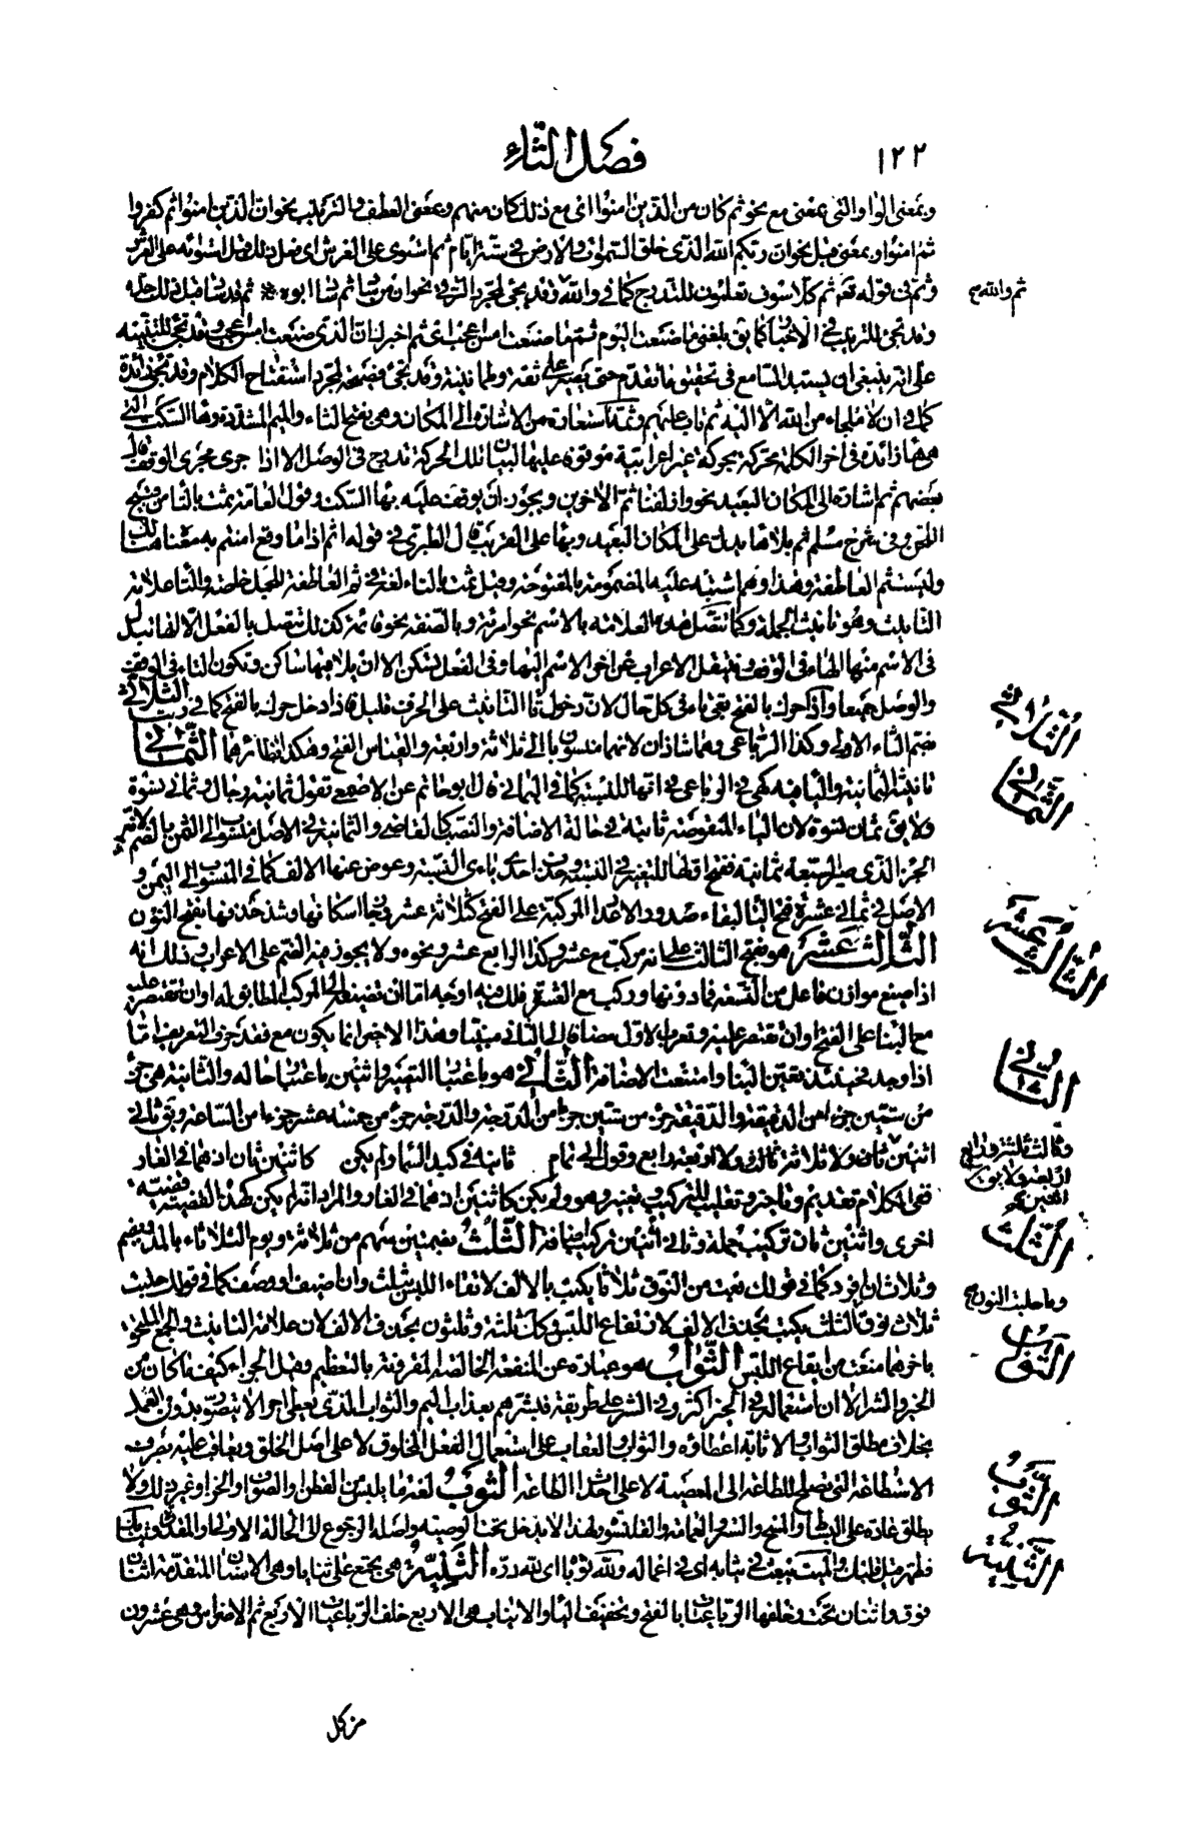 ١٢٢
فصل الثاء
وبمعنى الواو التى بمعنى مع نحو ثم كان من الذين امنوا اى مع ذلك كان منهم وبمعنى العطف والترتيب نحو ان الذين امنوا ثم كفروا
ثم امنوا وبمعنى قبل نحو ان ربكم الله الذى خلق السموات والارض فى ستة ايام ثم استوى على العرش اى فعل ذلك قبل استوائه على العرش
وثم فى قوله تعالى ثم كلا سوف تعلمون للتدريج كما فى والله وقد يجئ لمجرد الترقى نحو ان من ساد ثم ساد ابوه ثم قد ساد قبل ذلك جده
ثم والله مع
وقد تجئ للترتيب فى الاخبار كما يقال بلغنى ما صنعت اليوم ثم ما صنعت امس اعجب اى ثم اخبرك ان الذى صنعت امس اعجب وقد تجئ للتنبيه
على انه ينبغى ان يستبد السامع فى تحقيق ما تقدم حتى يصير على ثقة وطمانينة وقد تجئ فصيحة لمجرد استفتاح الكلام وقد تجئ زائدة
كما فى ان لا ملجاء من الله الا اليه ثم تاب عليهم وثمة استعارة من الاشارة الى المكان وهى بفتح الثاء والميم المشددة وهاء السكت التى
هى هاء زائدة فى اخر الكلمة محركة بحركة غير اعرابية موقوف عليها لبيان تلك الحركة تدرج فى الوصل الا اذا جرى مجرى الوقف قال
بعضهم ثم اشارة الى المكان البعيد نحو وازلفنا ثم الاخرين ويجوز ان يوقف عليه بهاء السكت وقول العامة ثمت بالتاء من قبيح
اللحن وفى شرح مسلم ثم بلا هاء يدل على المكان البعيد وبهاء على القريب قال الطبرى فى قوله اثم اذا ما وقع امنتم به معناه هنالك
وليست ثم العاطفة وهذا وهم اشتبه عليه المضمومة بالمفتوحة وقيل ثمت بالتاء لغة فى ثم العاطفة للجمل خاصة والتاء علامة
التانيث وهو تانيث الجملة وكما تتصل هذه العلامة بالاسم نحو امرئة وبالصفة نحو قائمة كذلك تتصل بالفعل الا انها تبدل
فى الاسم منها الهاء فى الوقف وينتقل الاعراب عن اخر الاسم اليها وفى الفعل تسكن الا ان يلاقيها ساكن وتكون التاء فى الوقف
والوصل جميعا واذا حرك بالفتح بقى تاء فى كل حال لان دخول تاء التانيث على الحرف قليل فاذا دخل حرك بالفتح كما فى ربت الثلاثى
بضم الثاء الاولى وكذا الرباعى وهما شاذان لانهما منسوبان الى ثلاثة واربعة والقياس الفتح وهكذا نظائرهما الثمانى
تانيثه الثمانية والياء فيه كهى فى الرباعى فى انها للنسبة كما فى اليمانى قال ابو حاتم عن الاصمعى تقول ثمانية رجال وثمانى نسوة
ولا يقال ثمان نسوة لان الياء المنقوصة ثابتة فى حالة الاضافة والنصب كياء القاضى والثمانية فى الاصل منسوب الى الثمن بالضم لانه
الجزء الذى صير السبعة ثمانية ففتح اولها للتغير فى النسب وحذف احدى ياءى النسبة وعوض عنها الالف كما فى المنسوب الى اليمن و
الاصل فى ثمانى عشرة فتح الياء لبناء صدور الاعداد المركبة على الفتح كثلاثة عشر وجاء اسكانها وشذ حذفها بفتح النون
الثالث عشر هو بفتح الثالث على انه مركب مع عشر وكذا الرابع عشر ونحوه ولا يجوز فيه الضم على الاعراب وذلك انه
اذا صيغ موازن فاعل من التسعة فما دونها وركب مع العشرة فلك فيه اوجه اما ان تضيفه الى المركب المطابق له او ان تقتصر عليه
مع البناء على الفتح او ان تقتصر عليه وتعرب الاول مضافا الى الثانى مبنيا وهذا الاخير انما يكون مع فقد حرف التعريف اما
اذا وجد فحينئذ تعين البناء وامتنعت الاضافة الثانى هو باعتبار التصيير واثنين باعتبار حاله والثانية هى جزء
من ستين جزءا من الدقيقة والدقيقة جزء من ستين جزءا من الدرجة والدرجة جزء من خمسة عشر جزءا من الساعة ويقال ثانى
اثنين ثان ولا ثلاثة ثالث ولا اربعة رابع وقول ابى تمام ثانيه فى كبد السماء ولم يكن كاثنين ثان اذ هما فى الغار
وثالث ثلثة ورابع
اربعة ولا يقال
اثنين
ففى الكلام تقديم وتاخير وتقليب للتركيب وتغيير وهو ولم يكن كاثنين اذ هما فى الغار والمراد انه لم يكن كهذه القضية قضية
اخرى واثنين ثان تركيب جملة وثانى اثنين تركيب اضافة الثلث بضمتين سهم من ثلاثة ويوم الثلاثاء بالمد ويضم
وثلاث ان افرد كما فى قولك بعت من النوق ثلاثا يكتب بالالف لانتفاء اللبس بثلث وان اضيف او وصف كما فى قولك حلبت
وما حلبت النوق
ثلاث نوق الثلث يكتب بحذف الالف لارتفاع اللبس وكل ثلثة وثلثون بحذف الالف لان علامة التانيث والجمع الملحق
باخرهما منعت من ايقاع اللبس الثواب هو عبارة عن المنفعة الخالصة المقرونة بالتعظيم وقيل الجزاء كيف ما كان من
الخير والشر الا ان استعماله فى الخير اكثر وفى الشر على طريقة فبشرهم بعذاب اليم والثواب الذى يعطى اجرا لا يتصور بدون العمل
بخلاف مطلق الثواب والاثابة اعطاؤه والثواب والعقاب على استعمال الفعل المخلوق لا على اصل الخلق ويعاقب عليه بصرف
الاستطاعة التى تصلح للطاعة الى المعصية لا على احداث الطاعة الثوب لغة ما يلبس من القطن والصوف والخز او غير ذلك ولا
يطلق عادة على البساط والمسح والستر والعمامة والقلنسوة ولهذا لا يدخل تحت الوصية واصله الرجوع الى الحالة الاولى او المقدرة وثيابك
فطهر قيل قلبك والميت يبعث فى ثيابه اى فى اعماله ولله ثوباه اى لله دره الثنية هى يجمع على ثنايا وهى الاسنان المتقدمة اثنان
فوق واثنان تحت وخلفها الرباعيات بالفتح وتخفيف الياء والانياب هى الاربع خلف الرباعيات الاربع ثم الاضراس وهى عشرون
الثلاثى
الثمانى
الثالث عشر
الثانى
الثلث
الثواب
الثوب
الثنية
من كل